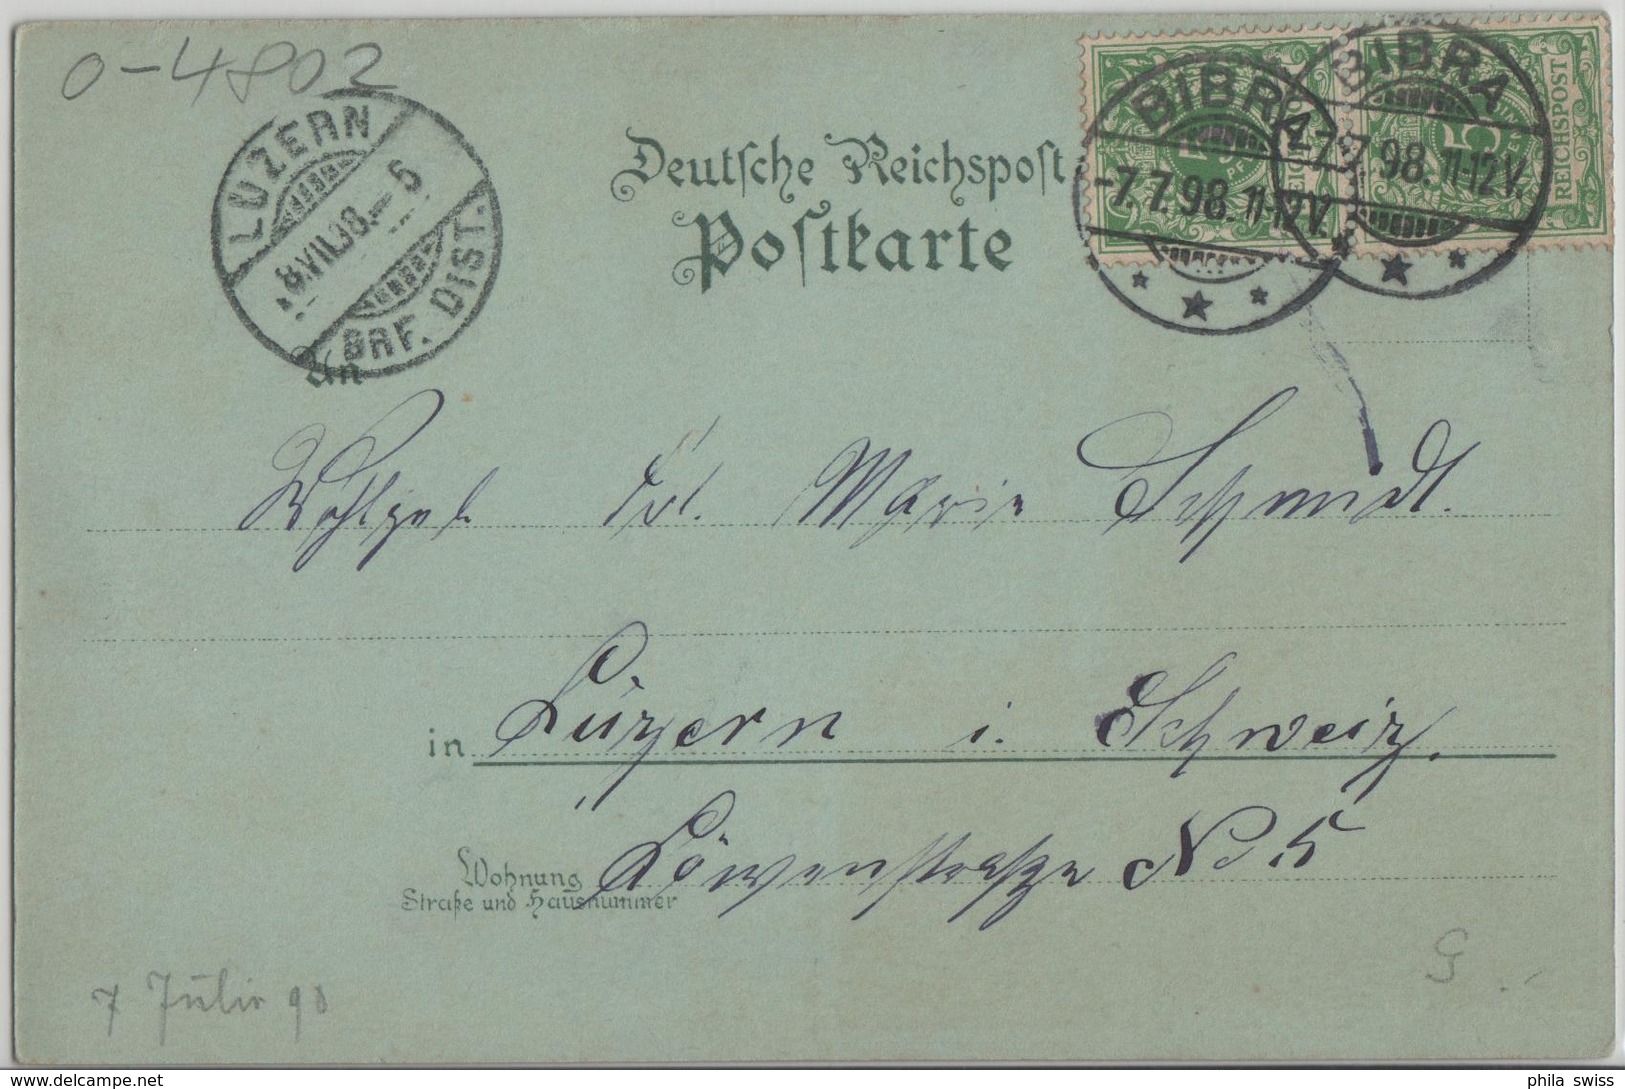 0-4802
LUZERN
8.VII.98.-5
BRF. DIST.
Deutsche Reichspost
Postkarte
BIBRA
-7.7.98.11-12V.
BIBRA
-7.7.98.11-12V.
REICHSPOST
5
REICHSPOST
An
Wohlgeb. Frl. Marie Schmidt.
in Luzern i. Schweiz.
Wohnung
Straße und Hausnummer
Löwenstraße No 5
7 Juli 98
G.
phila swiss